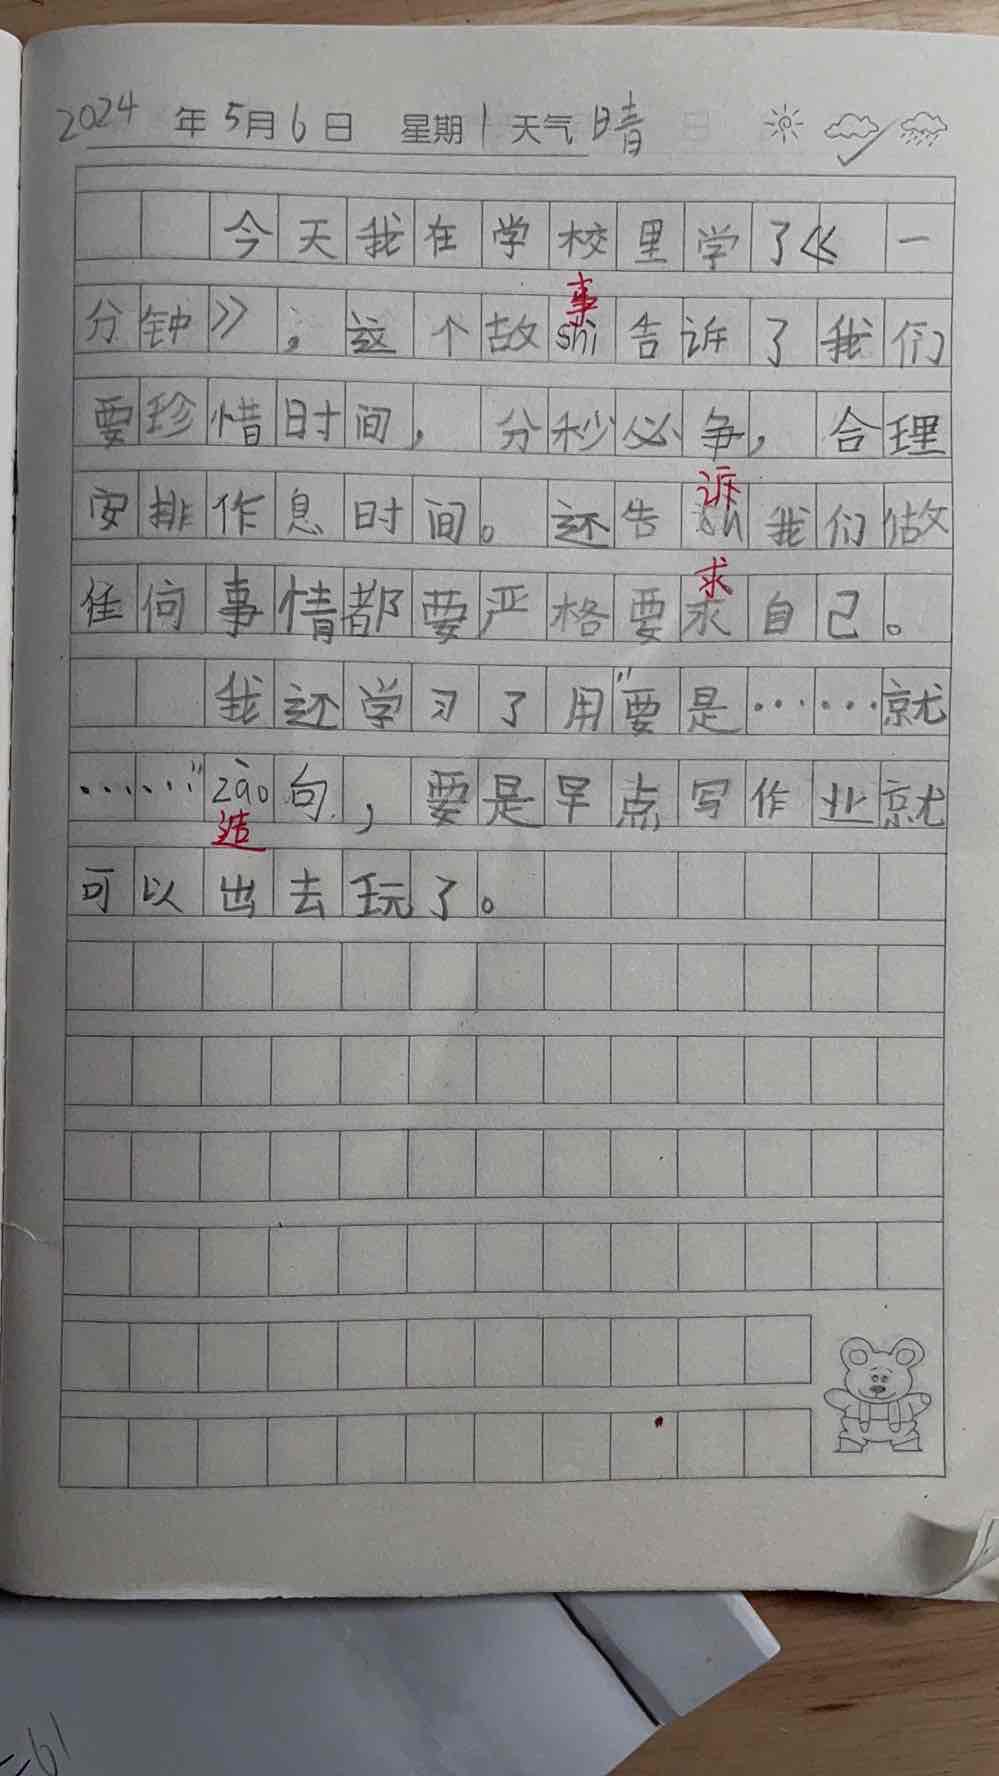 2024 年 5月 6 日 星期 1 天气 晴
今天我在学校里学了《一
事
分钟》,这个故shi告诉了我们
要珍惜时间，分秒必争，合理
诉
安排作息时间。还告我们做
求
任何事情都要严格要求自己。
我还学习了用"要是……就
……"zào句，要是早点写作业就
造
可以出去玩了。
=61